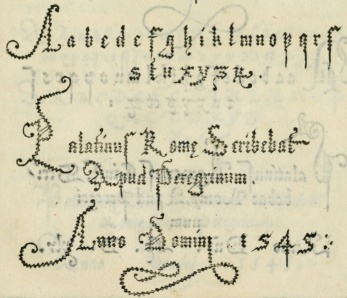 Aabcdefghiklmnopqrſ
stuxyzꝛ.
Palatinuſ Romę Scribebat
Apud Peregrinum.
Anno Dominj .1545: